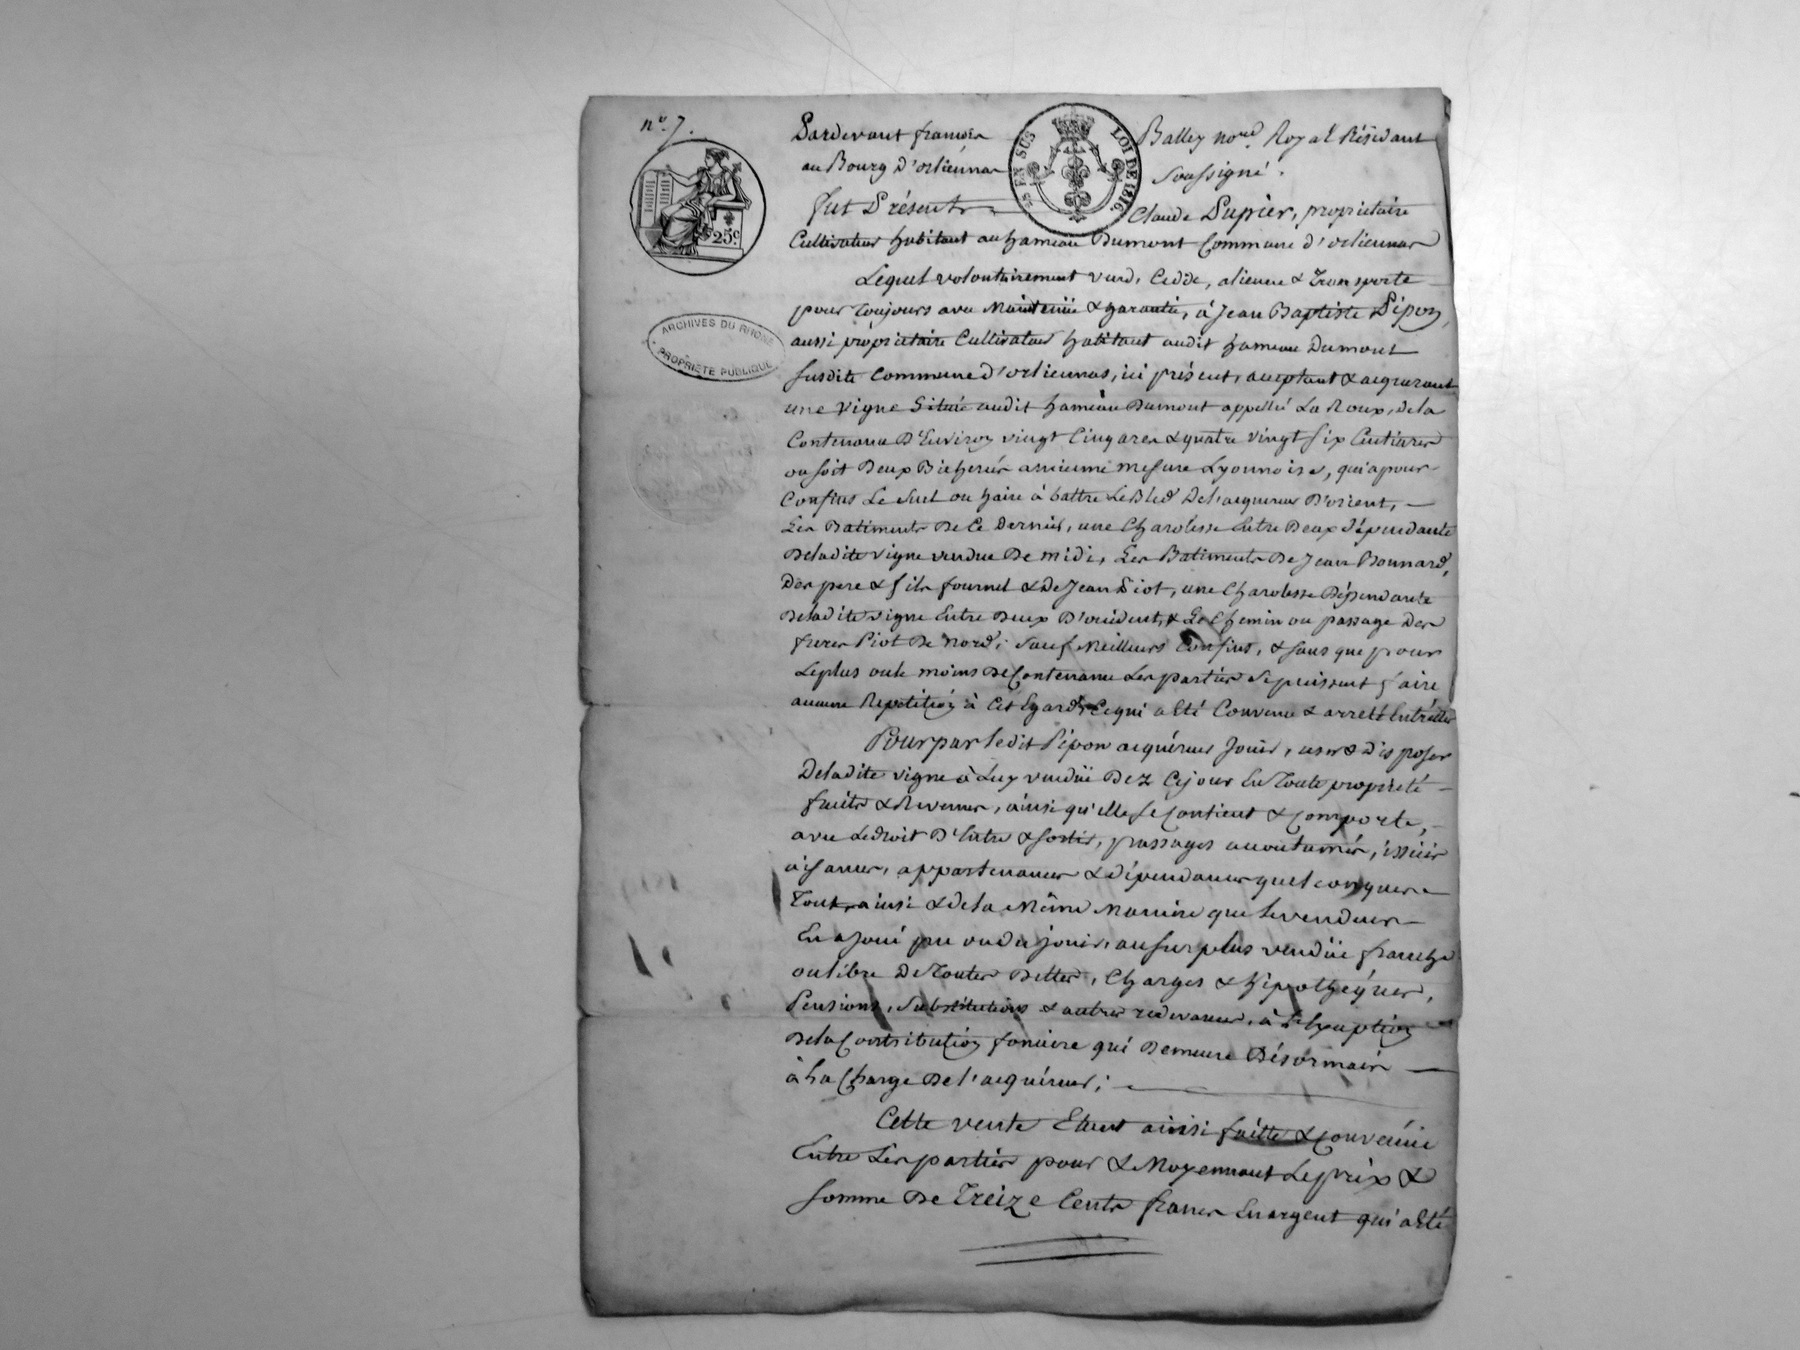 n.o 7.
Pardevant françois Balley no.re Royal Résidant
au Bourg D'orliénas Soussigné.
25 EN SUS LOI DE 1816
25.c
fut Présent Claude Dupier, propriétaire
Cultivateur habitant au hameau Dumont Commune d'orliennas
Lequel volontairement vend, Cedde, aliene & Transporte
pour Toujours avec Maintenüe & garantie, à Jean Baptiste Pipon
aussi propriétaire Cultivateur habitant audit hameau Dumont
susdite Commune d'orliennas, ici présent, acceptant & acquerant
ARCHIVES DU RHONE
PROPRIÉTÉ PUBLIQUE
une vigne Située audit hameau Dumont appellée La Roux, dela
Contenance D'Environ vingt Cinq ares & quatre vingt six Centiares
ou soit Deux Bicherées ancienne mesure Lyonnoise, qui a pour
Confins Le Suel ou haire à battre Le Bled De l'acquereur D'orient,
Les Batiments De Ce Dernier, une Charolesse Entre Deux dépendante
De ladite vigne vendue De midi, Les Batiments De Jean Bonnard,
Des pere & fils fournel & De Jean Piot, une Charolesse Dépendante
De ladite vigne Entre Deux D'occident, & Le Chemin ou passage Des
freres Piot De Nord; Sauf Meilleurs Confins, & sans que pour
Le plus ou le moins De Contenance Les parties Se puissent faire
aucune Repetition à Cet Egard, Ce qui a Eté Convenu & arreté Entr'elles
Pour par ledit Pipon acquéreur Jouir, user & disposer
De ladite vigne à Luy vendüe Dez Ce jour En Toute propriété
fruits & Revenus, ainsi qu'elle se Contient & Comporte,
avec Le droit D'Entré & sortir, passages accoutumés, issües
aisances, appartenances & dépendances quelconques
Tout ainsi & de la Même Maniere que le vendeur
En a Joui pu ou du jouir, au surplus vendüe franche
ou libre De Toutes Dettes, Charges & hipothéques,
Pensions, Substitutions & autres redevances, à L'Exception
De la Contribution fonciere qui Demeure Désormais
à La Charge De l'acquéreur;
Cette vente Etant ainsi faitte & Convenüe
Entre Les parties pour & Moyennant Le prix &
Somme De Treize Cents francs En argent qui a Eté